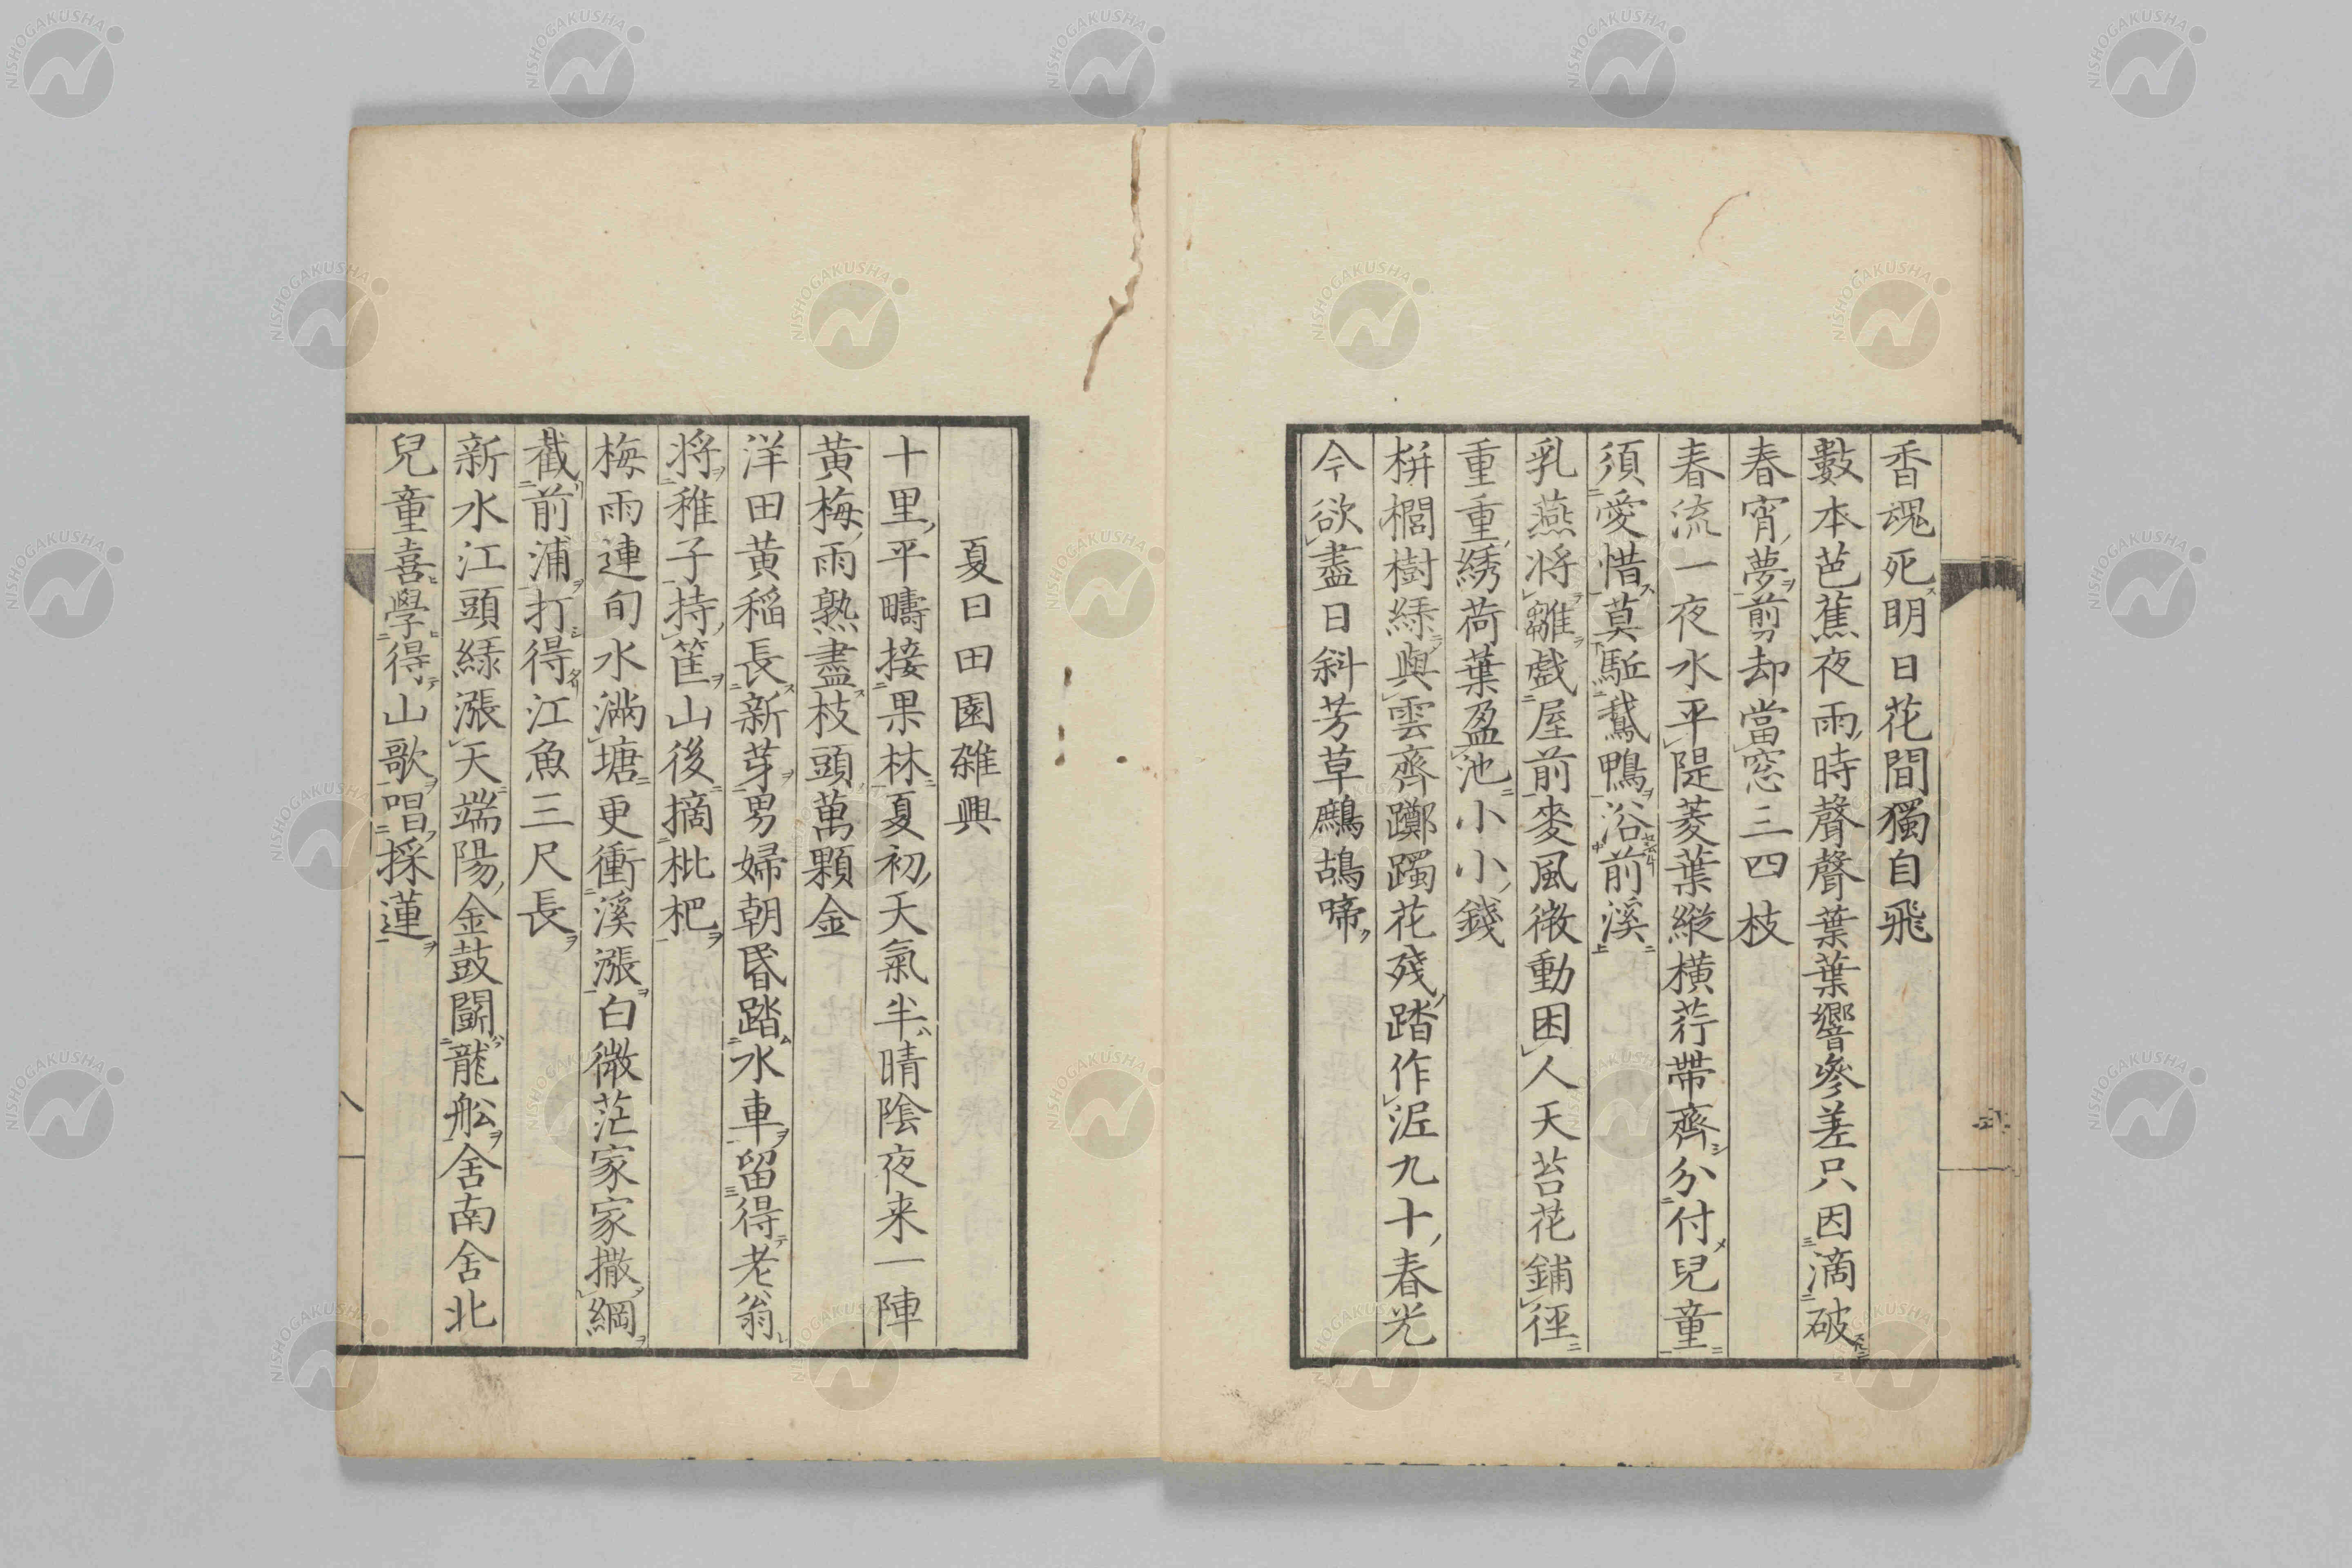 香魂死明日花間獨自飛
數本芭蕉夜雨時聲聲葉葉響參差只因滴破
春宵夢剪却當窓三四枝
春流一夜水平隄菱葉縱横荇帶齊分付兒童
須愛惜莫駈鵞鴨浴前溪
乳燕將雛戲屋前麥風微動困人天苔花鋪徑
重重綉荷葉盈池小小錢
栟櫚樹緑與雲齊躑躅花殘踏作泥九十春光
今欲盡日斜芳草鷓鴣啼
夏日田園雑興
十里平疇接果林夏初天氣半晴陰夜来一陣
黄梅雨熟盡枝頭萬顆金
洋田黄稲長新芽男婦朝昏踏水車留得老翁
將稚子持筐山後摘枇杷
梅雨連旬水滿塘更衝溪漲白微茫家家撒網
截前浦打得江魚三尺長
新水江頭緑漲天端陽金鼓鬪龍舩舍南舍北
兒童喜學得山歌唱採蓮
八
NISHOGAKUSHA